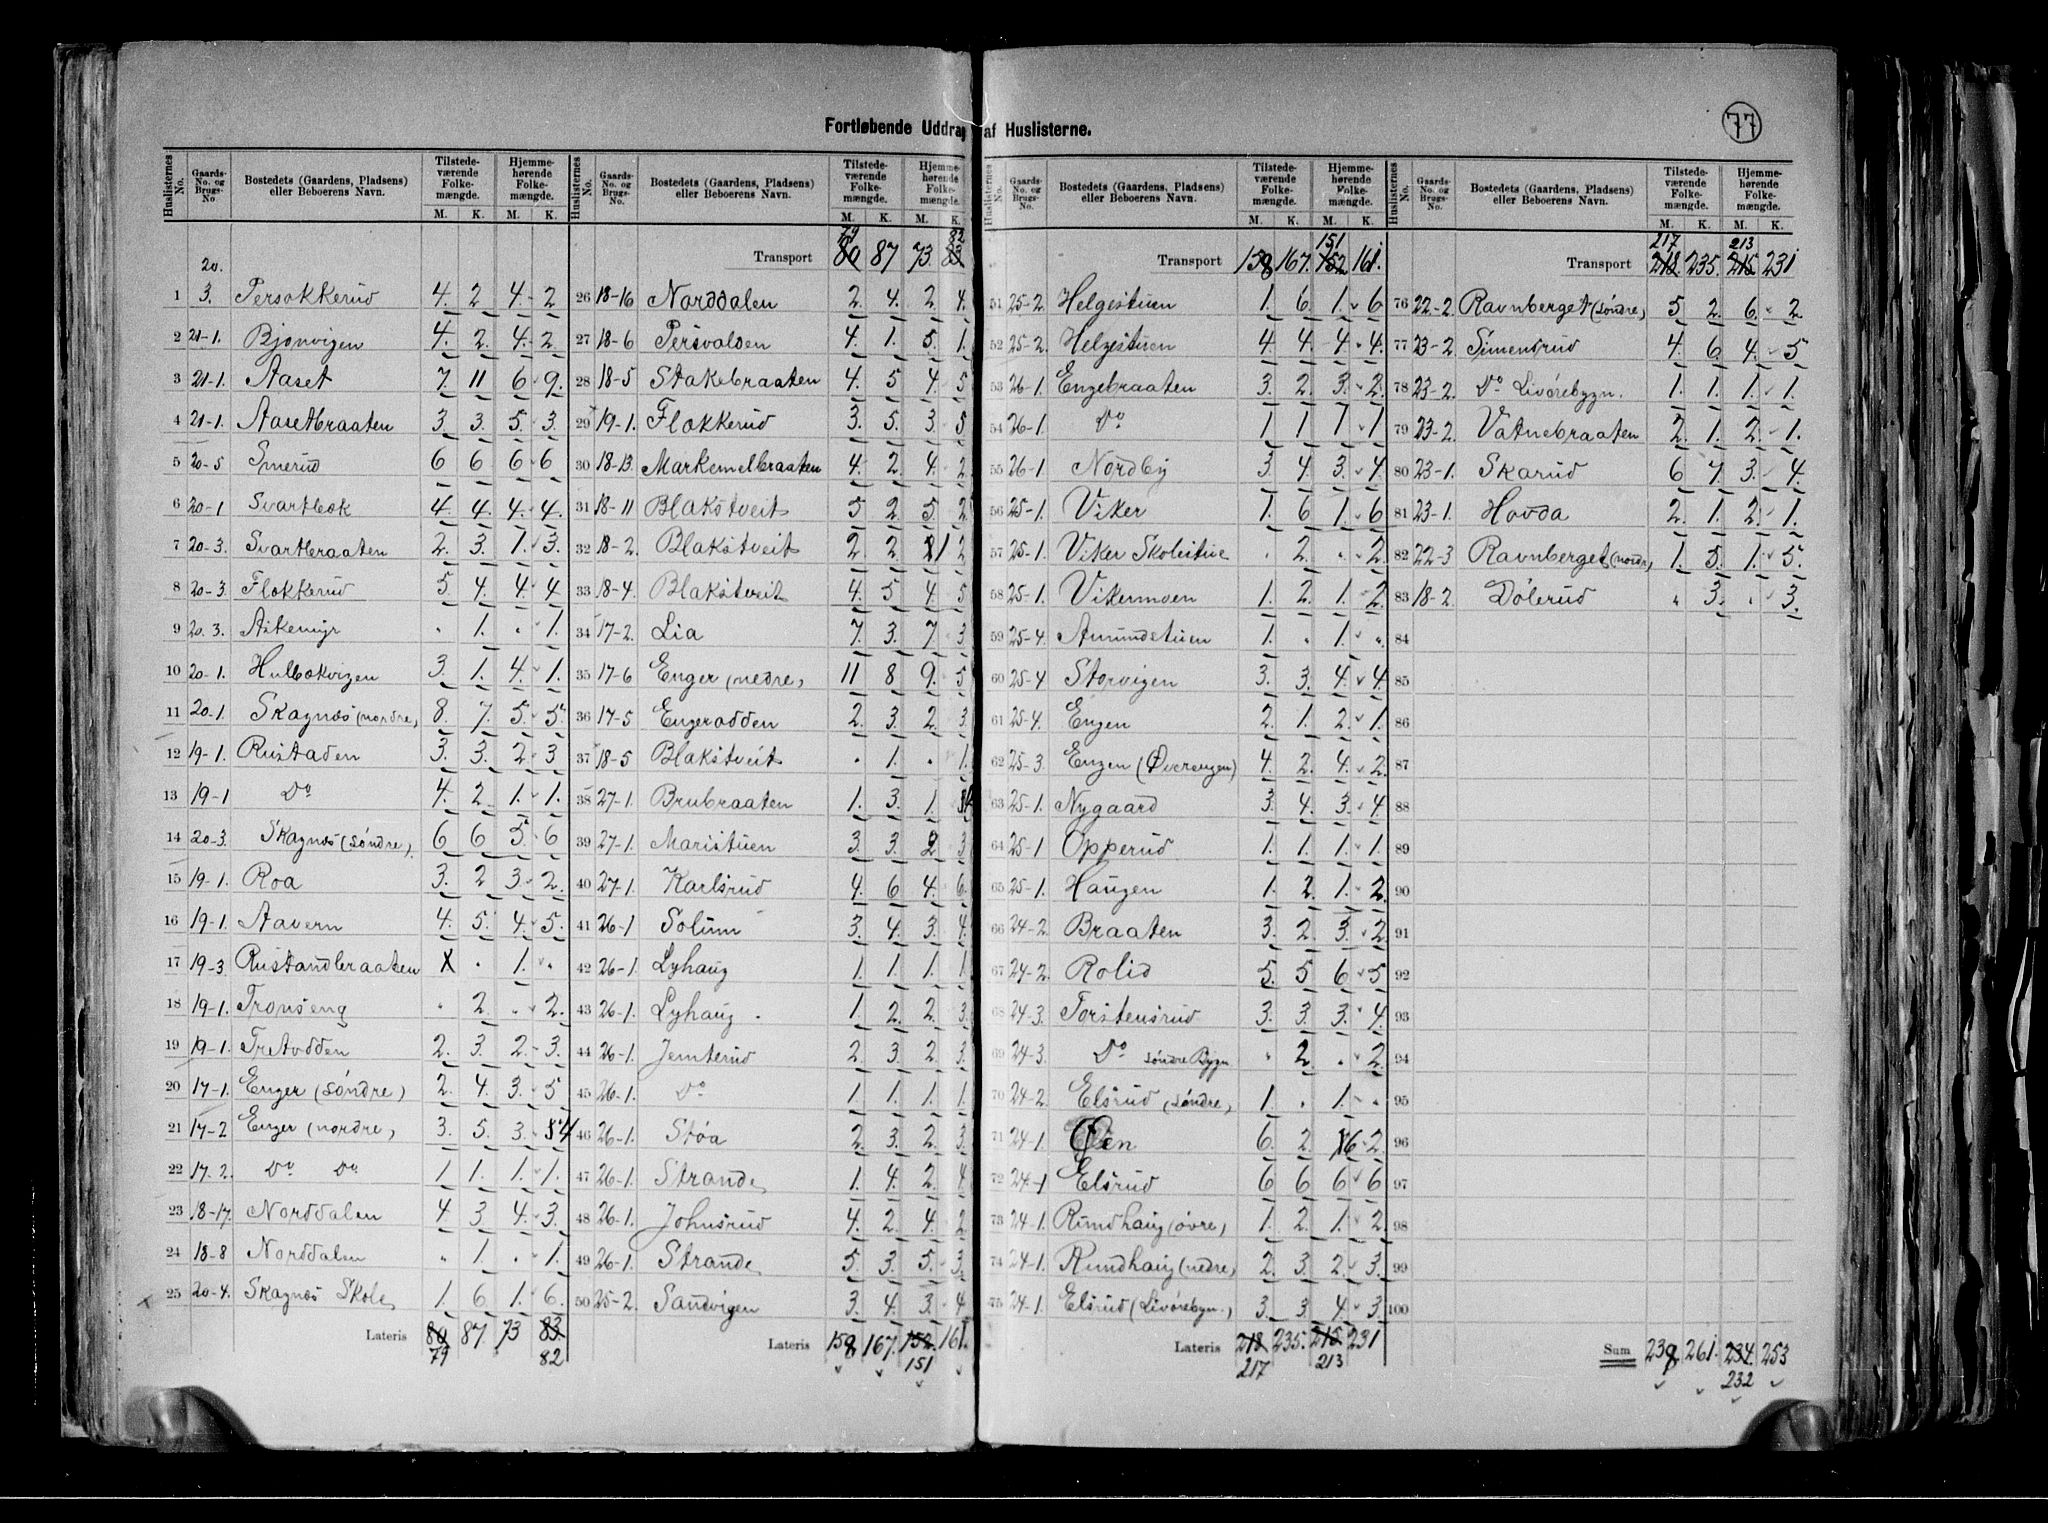 Fortløbende Uddrag af Huslisterne.
77
Huslisternes No. Gaards-No. og Brugs-No Bostedets (Gaardens, Pladsens) eller Beboerens Navn. Tilstedeværende Folkemængde. M. K. Hjemmehørende Folkemængde. M. K.
1 20. 3. Persokkerud 4. 2 4. 2
2 21-1. Bjonvigen 4. 2. 4. 2.
3 21-1. Aaset 7. 11 6 9.
4 21-1. Aasetbraaten 3. 3. 5. 3.
5 20-5 Smerud 6 6 6 6
6 20-1 Svartbæk 4. 4. 4. 4.
7 20-3. Svartbraaten 2. 3. 1. 3.
8 20-3. Flokkerud 5. 4. 4. 4
9 20.3. Askemyr . 1. . 1.
10 20-1. Hulbækvigen 3. 1. 4. 1.
11 20-1. Skagnæs (nordre) 8. 7. 5. 5.
12 19-1. Rustaden 3. 3. 2. 3
13 19-1 Do 4. 2. 1. 1.
14 20-3. Skagnæs (søndre) 6 6 5. 6
15 19-1. Roa 3. 2 3. 2.
16 19-1. Aavern 4. 5. 4. 5.
17 19-3. Rustandbraaten . 1. .
18 19-1. Tronseng . 2. . 2.
19 19-1. Tretodden 2. 3. 2. 3.
20 17-1. Enger (søndre) 2. 4. 3. 5
21 17-2 Enger (nordre) 3. 5. 3. 4
22 17.2. Do Do 1. 1. 1. 1.
23 18-17. Norddalen 4. 3. 4. 3.
24 18-8 Norddalen . 1. . 1.
25 20-4. Skagnæs Skole 1. 6. 1. 6.
Lateris 80 87. 73 83
79 82
Huslisternes No. Gaards-No. og Brugs-No. Bostedets (Gaardens, Pladsens) eller Beboerens Navn. Tilstedeværende Folkemængde. M. K. Hjemmehørende Folkemængde. M. K.
79 82
Transport 80 87 73 83
26 18-16 Norddalen 2. 4. 2. 4.
27 18-6 Persvalden 4. 1. 5. 1.
28 18-5 Stakebraaten 4. 5 4. 5
29 19-1. Flokkerud 3. 5. 3. 5
30 18-13. Markemelbraaten 4. 2 4. 2
31 18-11 Blakstveit 5 2. 5. 2
32 18-2. Blakstveit 2. 2. 1 2
33 18-4. Blakstveit 4. 5 4. 5
34 17-2. Lia 7. 3. 7. 3
35 17-6 Enger (nedre) 11 8 9. 5
36 17-5 Engerodden 2. 3. 2. 3.
37 18-5 Blakstveit . 1. . 1.
38 27-1. Brubraaten 1. 3. 1. 4
39 27-1. Maristuen 3. 3. 2 3
40 27-1. Karlsrud 4. 6 4. 6.
41 26-1 Solum 3. 4. 3. 4.
42 26-1. Lyhaug 1. 1. 1. 1
43 26-1. Lyhaug 1. 2. 2. 3.
44 26-1. Jemterud 2. 3. 2. 3.
45 26-1. Do 1. 1. 1. 1.
46 26-1. Støa 2. 3. 2. 3.
47 26-1. Strande 1. 4. 2. 4
48 26-1. Johnsrud 4. 2. 4. 2
49 26-1. Strande 5. 3. 5. 3.
50 25-2. Sandvigen 3. 4. 3. 4
Lateris 158 167. 152. 161.
151
Huslisternes No. Gaards-No. og Brugs-No. Bostedets (Gaardens, Pladsens) eller Beboerens Navn. Tilstedeværende Folkemængde. M. K. Hjemmehørende Folkemængde. M. K.
151
Transport 158 167. 152 161.
51 25-2. Helgestuen 1. 6 1. 6
52 25-2. Helgestuen 4. 4. 4. 4.
53 26-1. Engebraaten 3. 2. 3. 2.
54 26-1. Do 1 1 1 1
55 26-1 Nordby 3. 4. 3. 4.
56 25-1. Viker 1. 6 1. 6
57 25-1. Viker Skolestue . 2. . 2.
58 25-1. Vikermoen 1. 2. 1. 2.
59 25-4. Amundstuen 1. . 1. .
60 25-4 Storvigen 3. 3. 4. 4.
61 25-4. Engen 2. 1. 2. 1.
62 25-3. Engen (Øverengen) 4. 2. 4. 2.
63 25-1. Nygaard 3. 4. 3. 4
64 25-1 Opperud 1. 1. 1. 1.
65 25-1. Haugen 1. 2. 1. 2.
66 24-2. Braaten 3. 2. 3. 2.
67 24-2. Rolid 5. 5 6. 5
68 24-3. Torstensrud 3. 3. 3. 4.
69 24-3. Do søndre Bygn . 2. . 2.
70 24-2. Elsrud (søndre) 1. . 1. .
71 24-1. Øen 6. 2. 6 2.
72 24-1 Elsrud 6 6 6 6
73 24-1. Rundhaug (øvre) 1. 2. 1. 2.
74 24-1. Rundhaug (nedre) 2. 3. 2. 3.
75 24-1. Elsrud (Livørebygn.) 3. 3. 4. 3.
Lateris 218 235. 215. 231
217 213
Huslisternes No. Gaards-No. og Brugs-No. Bostedets (Gaardens, Pladsens) eller Beboerens Navn. Tilstedeværende Folkemængde. M. K. Hjemmehørende Folkemængde. M. K.
217 213
Transport 218 235. 215 231
76 22-2. Ravnberget (søndre) 5 2. 6. 2.
77 23-2. Simensrud 4. 6. 4. 5
78 23-2. Do Livørebygn. 1. 1. 1. 1.
79 23-2. Vatnebraaten 2. 1. 2. 1.
80 23-1. Skarud 6 7. 3. 4.
81 23-1. Hovda 2. 1. 2. 1.
82 22-3 Ravnberget (nordr) 1. 5. 1. 5.
83 18-2. Dølerud . 3. . 3.
84
85
86
87
88
89
90
91
92
93
94
95
96
97
98
99
100
Sum 238 261. 234. 253
232